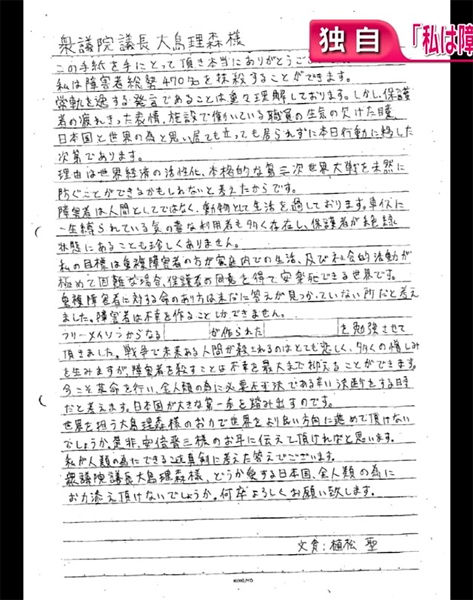 独自
「私は障
衆議院議長大島理森様
この手紙を手にとって頂き本当にありがとうござい
私は障害者総勢470名を抹殺することができます。
常軌を逸する発言であることは重々理解しております。しかし、保護
者の疲れきった表情、施設で働いている職員の生気の欠けた瞳、
日本国と世界の為と思い居ても立っても居られずに本日行動に移した
次第であります。
理由は世界経済の活性化、本格的な第三次世界大戦を未然に
防ぐことができるかもしれないと考えたからです。
障害者は人間としてではなく、動物として生活を過しております。車イスに
一生縛られている気の毒な利用者も多く存在し、保護者が絶縁
状態にあることも珍しくありません。
私の目標は重複障害者の方が家庭内での生活、及び社会的活動が
極めて困難な場合、保護者の同意を得て安楽死できる世界です。
重複障害者に対する命のあり方は未だに答えが見つかっていない所だと考え
ました。障害者は不幸を作ることしかできません。
フリーメイソンからなる が作られた を勉強させて
頂きました。戦争で未来ある人間が殺されるのはとても悲しく、多くの憎しみ
を生みますが、障害者を殺すことは不幸を最大まで抑えることができます。
今こそ革命を行い、全人類の為に必要不可欠である辛い決断をする時
だと考えます。日本国が大きな第一歩を踏み出すのです。
世界を担う大島理森様のお力で世界をより良い方向に進めて頂けない
でしょうか。是非、安倍晋三様のお耳に伝えて頂ければと思います。
私が人類の為にできることを真剣に考えた答えでございます。
衆議院議長大島理森様、どうか愛する日本国、全人類の為に
お力添え頂けないでしょうか。何卒よろしくお願い致します。
文責：植松 聖
KOKUYO